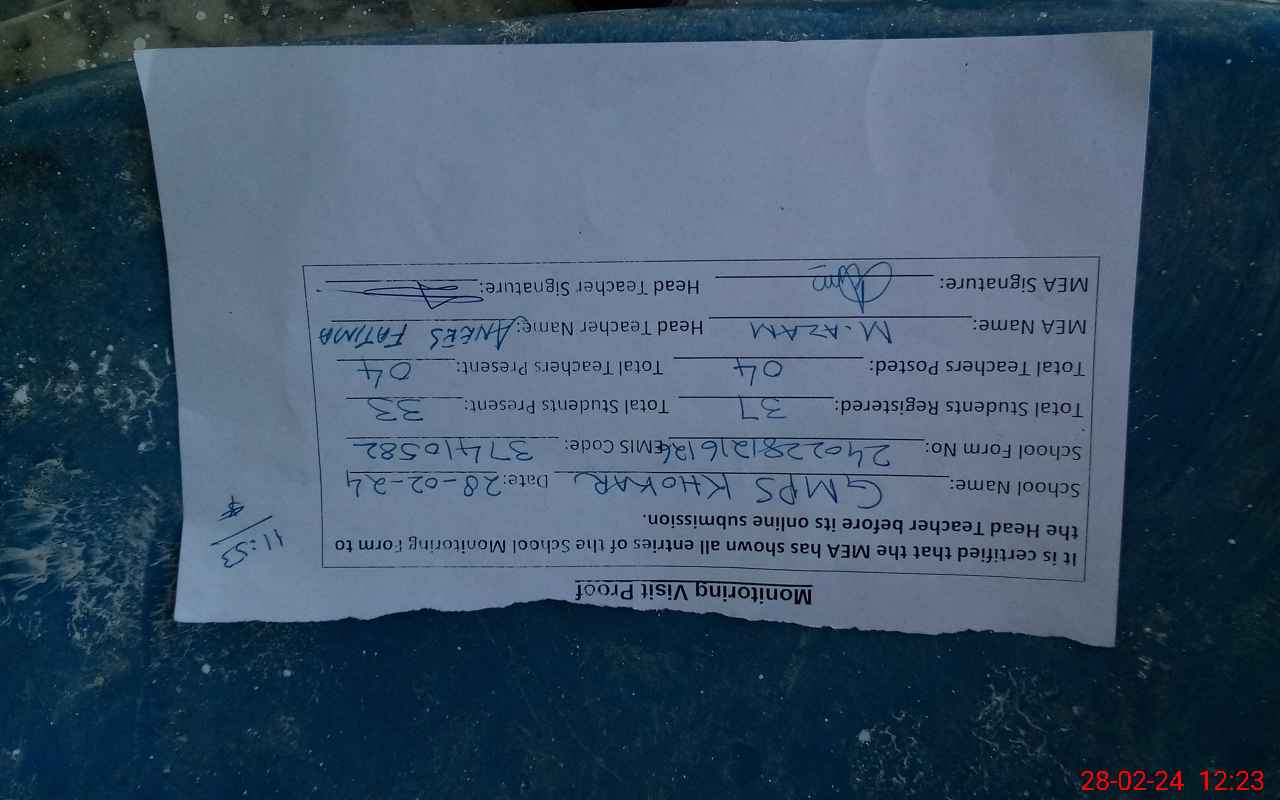 Monitoring Visit Proof
It is certified that the MEA has shown all entries of the School Monitoring Form to
the Head Teacher before its online submission.
School Name: GMPS KHOKAR Date: 28-02-24
School Form No: 240228121612 EMIS Code: 37410582
Total Students Registered: 37 Total Students Present: 33
Total Teachers Posted: 04 Total Teachers Present: 04
MEA Name: M. AZAM Head Teacher Name: ANEES FATIMA
MEA Signature: Head Teacher Signature:
11:53
28-02-24 12:23